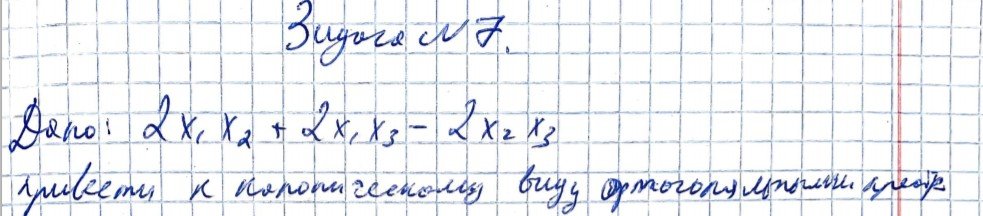 Задача №7.
Дано: 2x₁x₂ + 2x₁x₃ - 2x₂x₃
привести к каноническому виду ортогональными преобр